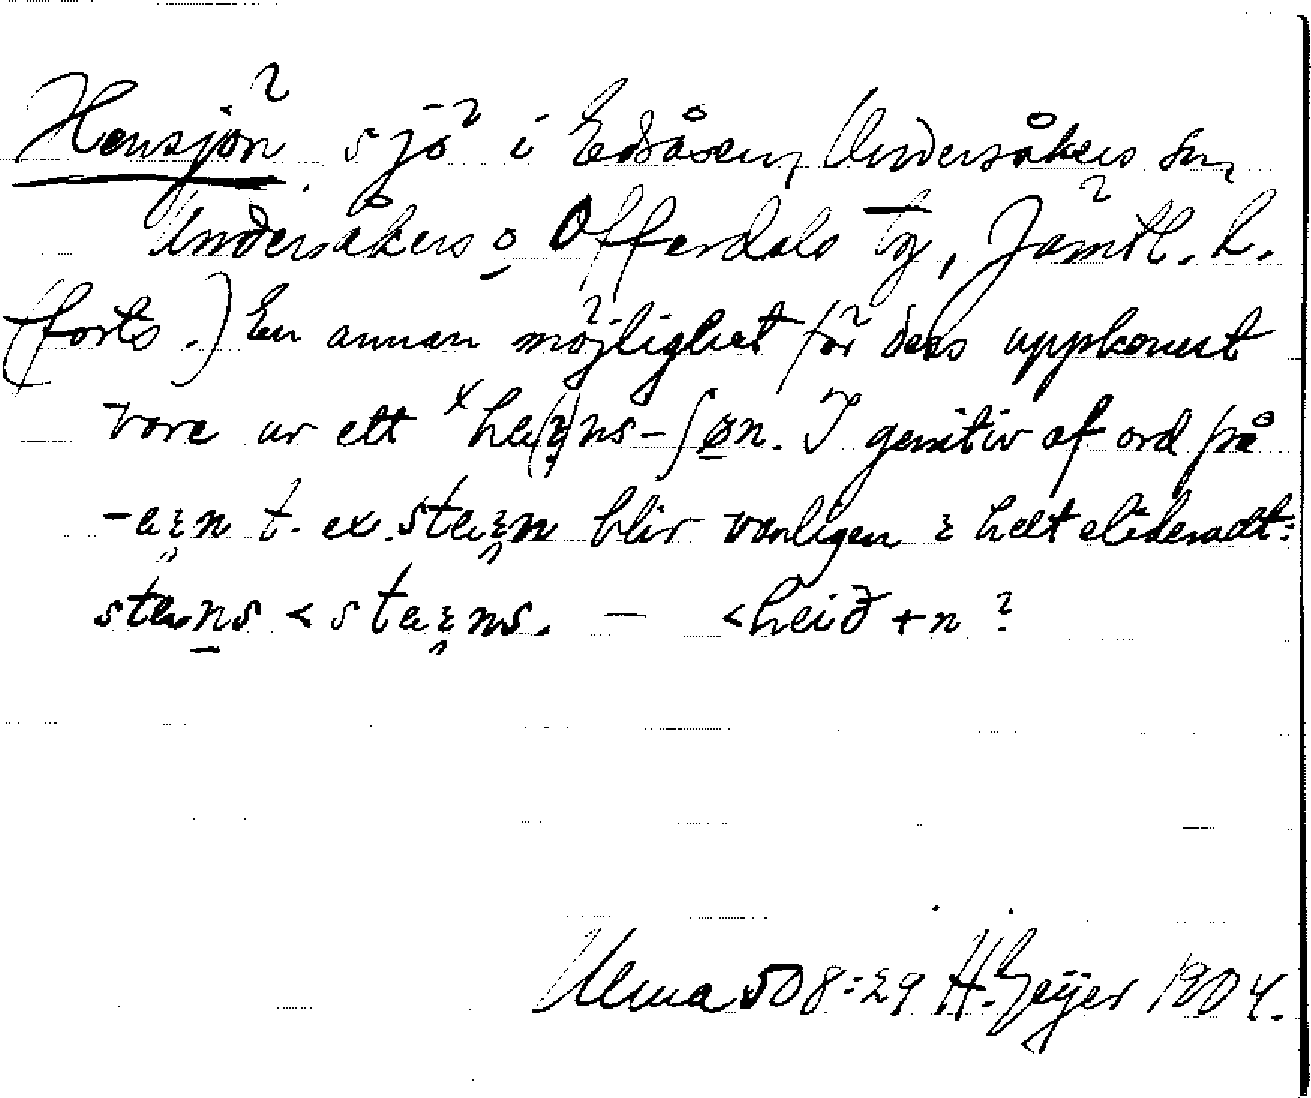 Hensjön, sjö i Edsåsen, Undersåkers sn,
Undersåkers o Offerdals tg, Jämtl. l.
(forts.) En annan möjlighet för dess uppkomst
vore ur ett ˣhe(ı̨)ns-ʃøn. I genitiv af ord på
-eı̨n t. ex. steı̨n blir vanligen ı helt elideradt:
stens < steı̨ns. – < heið + n?
Ulma 508:29 H. Geijer 1904.